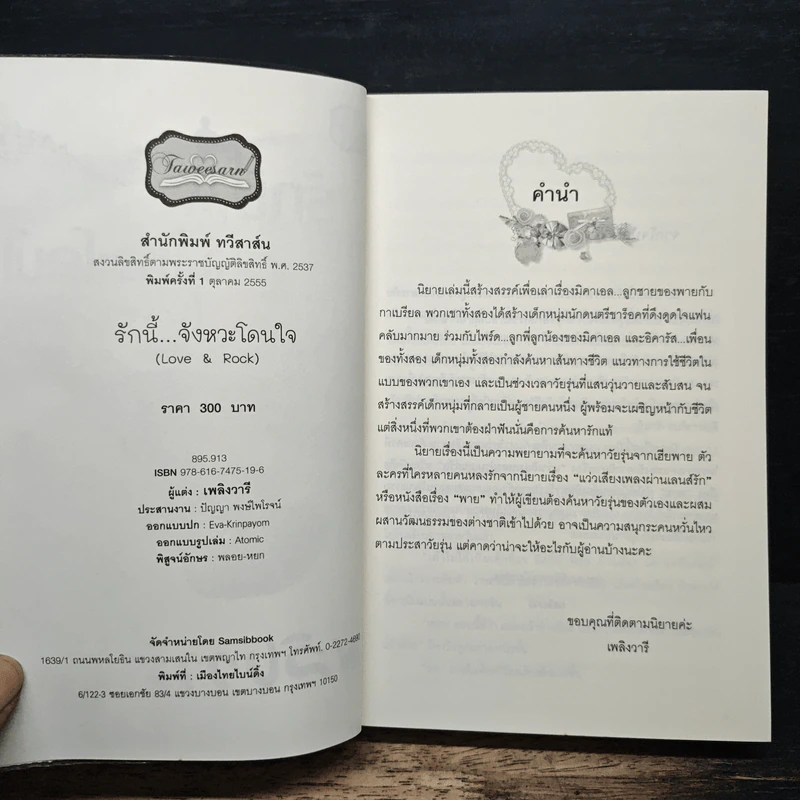 Taweesarn
สำนักพิมพ์ ทวีสาส์น
สงวนลิขสิทธิ์ตามพระราชบัญญัติลิขสิทธิ์ พ.ศ. 2537
พิมพ์ครั้งที่ 1 ตุลาคม 2555
รักนี้...จังหวะโดนใจ
(Love & Rock)
ราคา 300 บาท
895.913
ISBN 978-616-7475-19-6
ผู้แต่ง : เพลิงวารี
ประสานงาน : ปัญญา พงษ์ไพโรจน์
ออกแบบปก : Eva-Krinpayom
ออกแบบรูปเล่ม : Atomic
พิสูจน์อักษร : พลอย-หยก
จัดจำหน่ายโดย Samsibbook
1639/1 ถนนพหลโยธิน แขวงสามเสนใน เขตพญาไท กรุงเทพฯ โทรศัพท์. 0-2272-4690
พิมพ์ที่ : เมืองไทยไบน์ดิ้ง
6/122-3 ซอยเอกชัย 83/4 แขวงบางบอน เขตบางบอน กรุงเทพฯ 10150
คำนำ
นิยายเล่มนี้สร้างสรรค์เพื่อเล่าเรื่องมิคาเอล...ลูกชายของพายกับ
กาเบรียล พวกเขาทั้งสองได้สร้างเด็กหนุ่มนักดนตรีขาร็อคที่ดึงดูดใจแฟน
คลับมากมาย ร่วมกับไพร์ด...ลูกพี่ลูกน้องของมิคาเอล และอิคารัส...เพื่อน
ของทั้งสอง เด็กหนุ่มทั้งสองกำลังค้นหาเส้นทางชีวิต แนวทางการใช้ชีวิตใน
แบบของพวกเขาเอง และเป็นช่วงเวลาวัยรุ่นที่แสนวุ่นวายและสับสน จน
สร้างสรรค์เด็กหนุ่มที่กลายเป็นผู้ชายคนหนึ่ง ผู้พร้อมจะเผชิญหน้ากับชีวิต
แต่สิ่งหนึ่งที่พวกเขาต้องฝ่าฟันนั่นคือการค้นหารักแท้
นิยายเรื่องนี้เป็นความพยายามที่จะค้นหาวัยรุ่นจากเฮียพาย ตัว
ละครที่ใครหลายคนหลงรักจากนิยายเรื่อง "แว่วเสียงเพลงผ่านเลนส์รัก"
หรือหนังสือเรื่อง "พาย" ทำให้ผู้เขียนต้องค้นหาวัยรุ่นของตัวเองและผสม
ผสานวัฒนธรรมของต่างชาติเข้าไปด้วย อาจเป็นความสนุกระคนหวั่นไหว
ตามประสาวัยรุ่น แต่คาดว่าน่าจะให้อะไรกับผู้อ่านบ้างนะคะ
ขอบคุณที่ติดตามนิยายค่ะ
เพลิงวารี